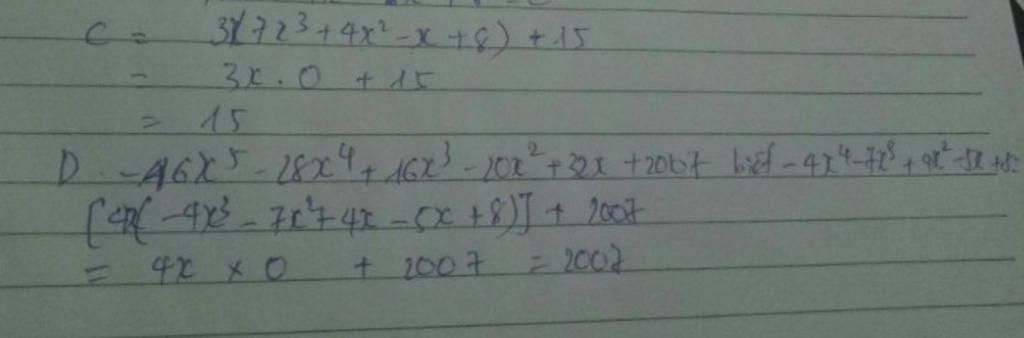 C = 3x(7x³ + 4x² - x + 8) + 15
= 3x . 0 + 15
= 15
D . -16x⁵ - 28x⁴ + 16x³ - 20x² + 32x + 2007 biết -4x⁴ - 7x³ + 4x² - 5x + 8 =
[4x( -4x³ - 7x² + 4x - 5x + 8)] + 2007
= 4x × 0 + 2007 = 2007